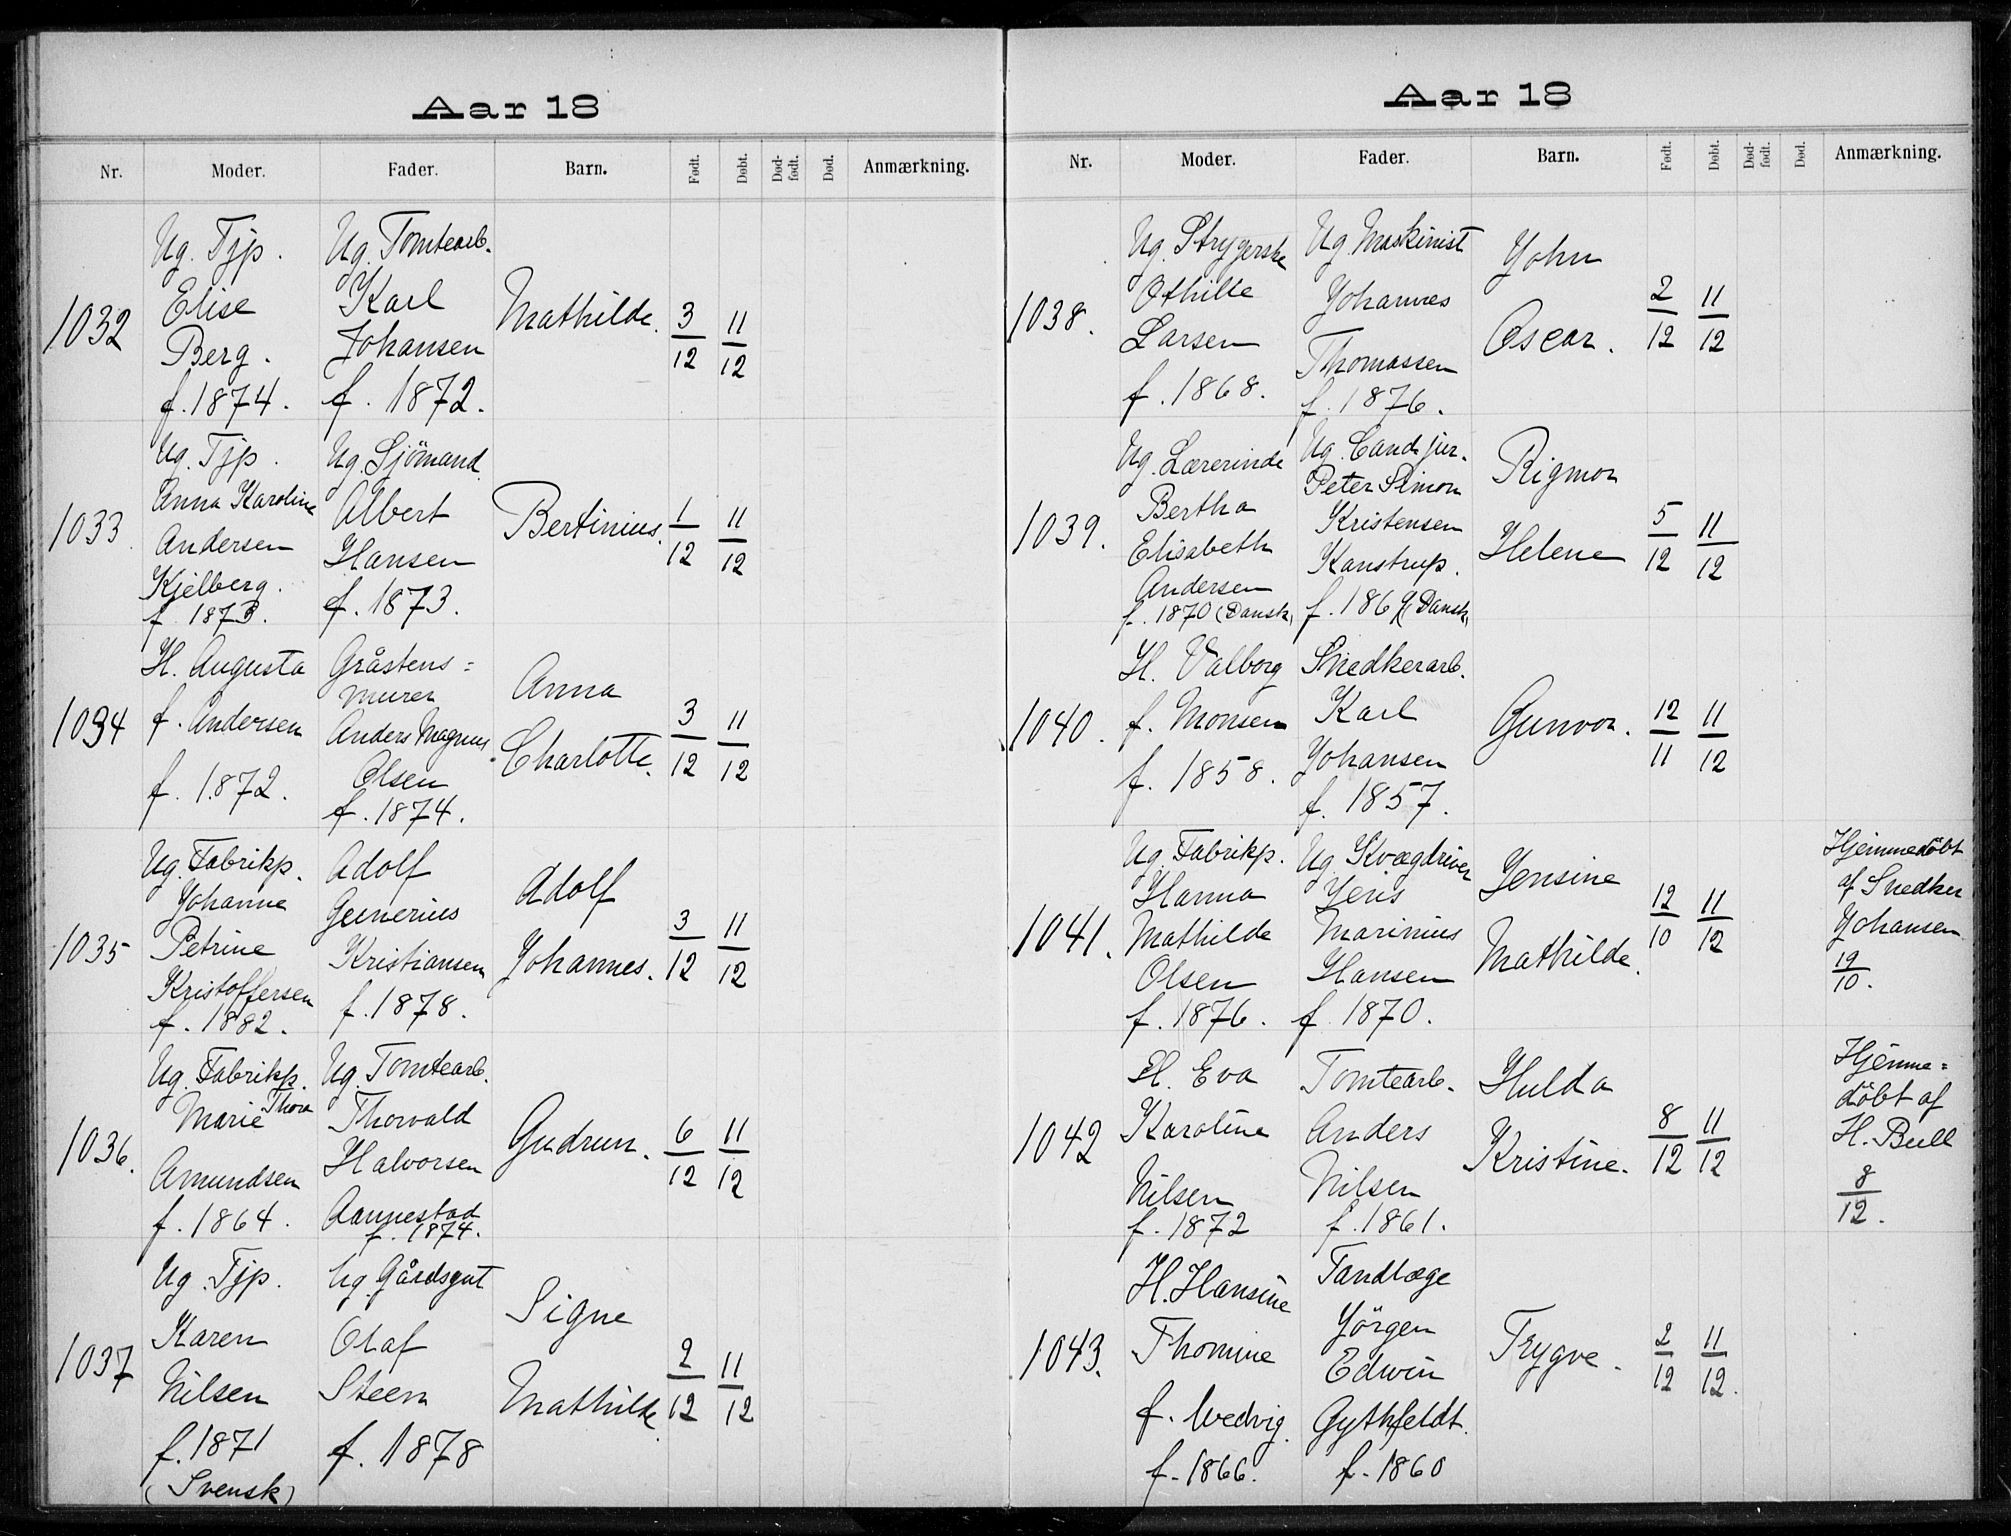 Aar 18
Nr. Moder. Fader. Barn. Født. Døbt. Død-født. Død. Anmærkning.
1032
Ug. Tjp.
Elise
Berg.
f. 1874.
Ug. Tomtearb.
Karl
Johansen
f. 1872.
Mathilde.
3/12
11/12
1033
Ug. Tjp.
Anna Karoline
Andersen
Kjelberg.
f. 1873.
Ug. Sjömand
Albert
Hansen
f. 1873.
Bertinius.
1/12
11/12
1034
H. Augusta
f. Andersen
f. 1872.
Gråstens=
murer
Anders Magnus
Olsen
f. 1874.
Anna
Charlotte.
3/12
11/12
1035
Ug. Fabrikp.
Johanne
Petrine
Kristoffersen
f. 1882.
Adolf
Gunerius
Kristiansen
f. 1878.
Adolf
Johannes.
3/12
11/12
1036.
Ug. Fabrikp.
Marie Thora
Amundsen
f. 1864.
Ug. Tomtearb.
Thorvald
Halvorsen
Aannestad
f. 1874.
Gudrun.
6/12
11/12
1037
Ug. Tjp.
Karen
Nilsen
f. 1871
(Svensk)
Ug. Gårdsgut
Olaf
Steen
f. 1878
Signe
Mathilde
2/12
11/12
Aar 18
Nr. Moder. Fader. Barn. Født. Døbt. Død-født. Død. Anmærkning.
1038.
Ug. Strygerske
Othilie
Larsen
f. 1868.
Ug. Maskinist
Johannes
Thomassen
f. 1876.
John
Oscar.
2/12
11/12
1039.
Ug. Lærerinde
Bertha
Elisabeth
Andersen
f. 1870 (Dansk)
Ug. Cand. jur.
Peter Simon
Kristensen
Kanstrup.
f. 1869 (Dansk)
Rigmor
Helene
5/12
11/12
1040.
H. Valborg
f. Monsen
f. 1858.
Snedkerarb.
Karl
Johansen
f. 1857.
Gunvor.
12/11
11/12
1041.
Ug. Fabrikp.
Hanna
Mathilde
Olsen
f. 1876.
Ug. Kvægdriver
Jens
Marinius
Hansen
f. 1870.
Jensine
Mathilde.
12/10
11/12
Hjemmedöbt
af Snedker
Johansen
19/10.
1042
H. Eva
Karoline
Nilsen
f. 1872
Tomtearb.
Anders
Nilsen
f. 1861.
Hulda
Kristine.
8/12
11/12
Hjemme=
döbt af
H. Bull
8/12.
1043.
H. Hansine
Thomine
f. Wedvig.
f. 1866.
Tandlæge
Jörgen
Edwin
Gythfeldt.
f. 1860
Trygve.
2/12
11/12.